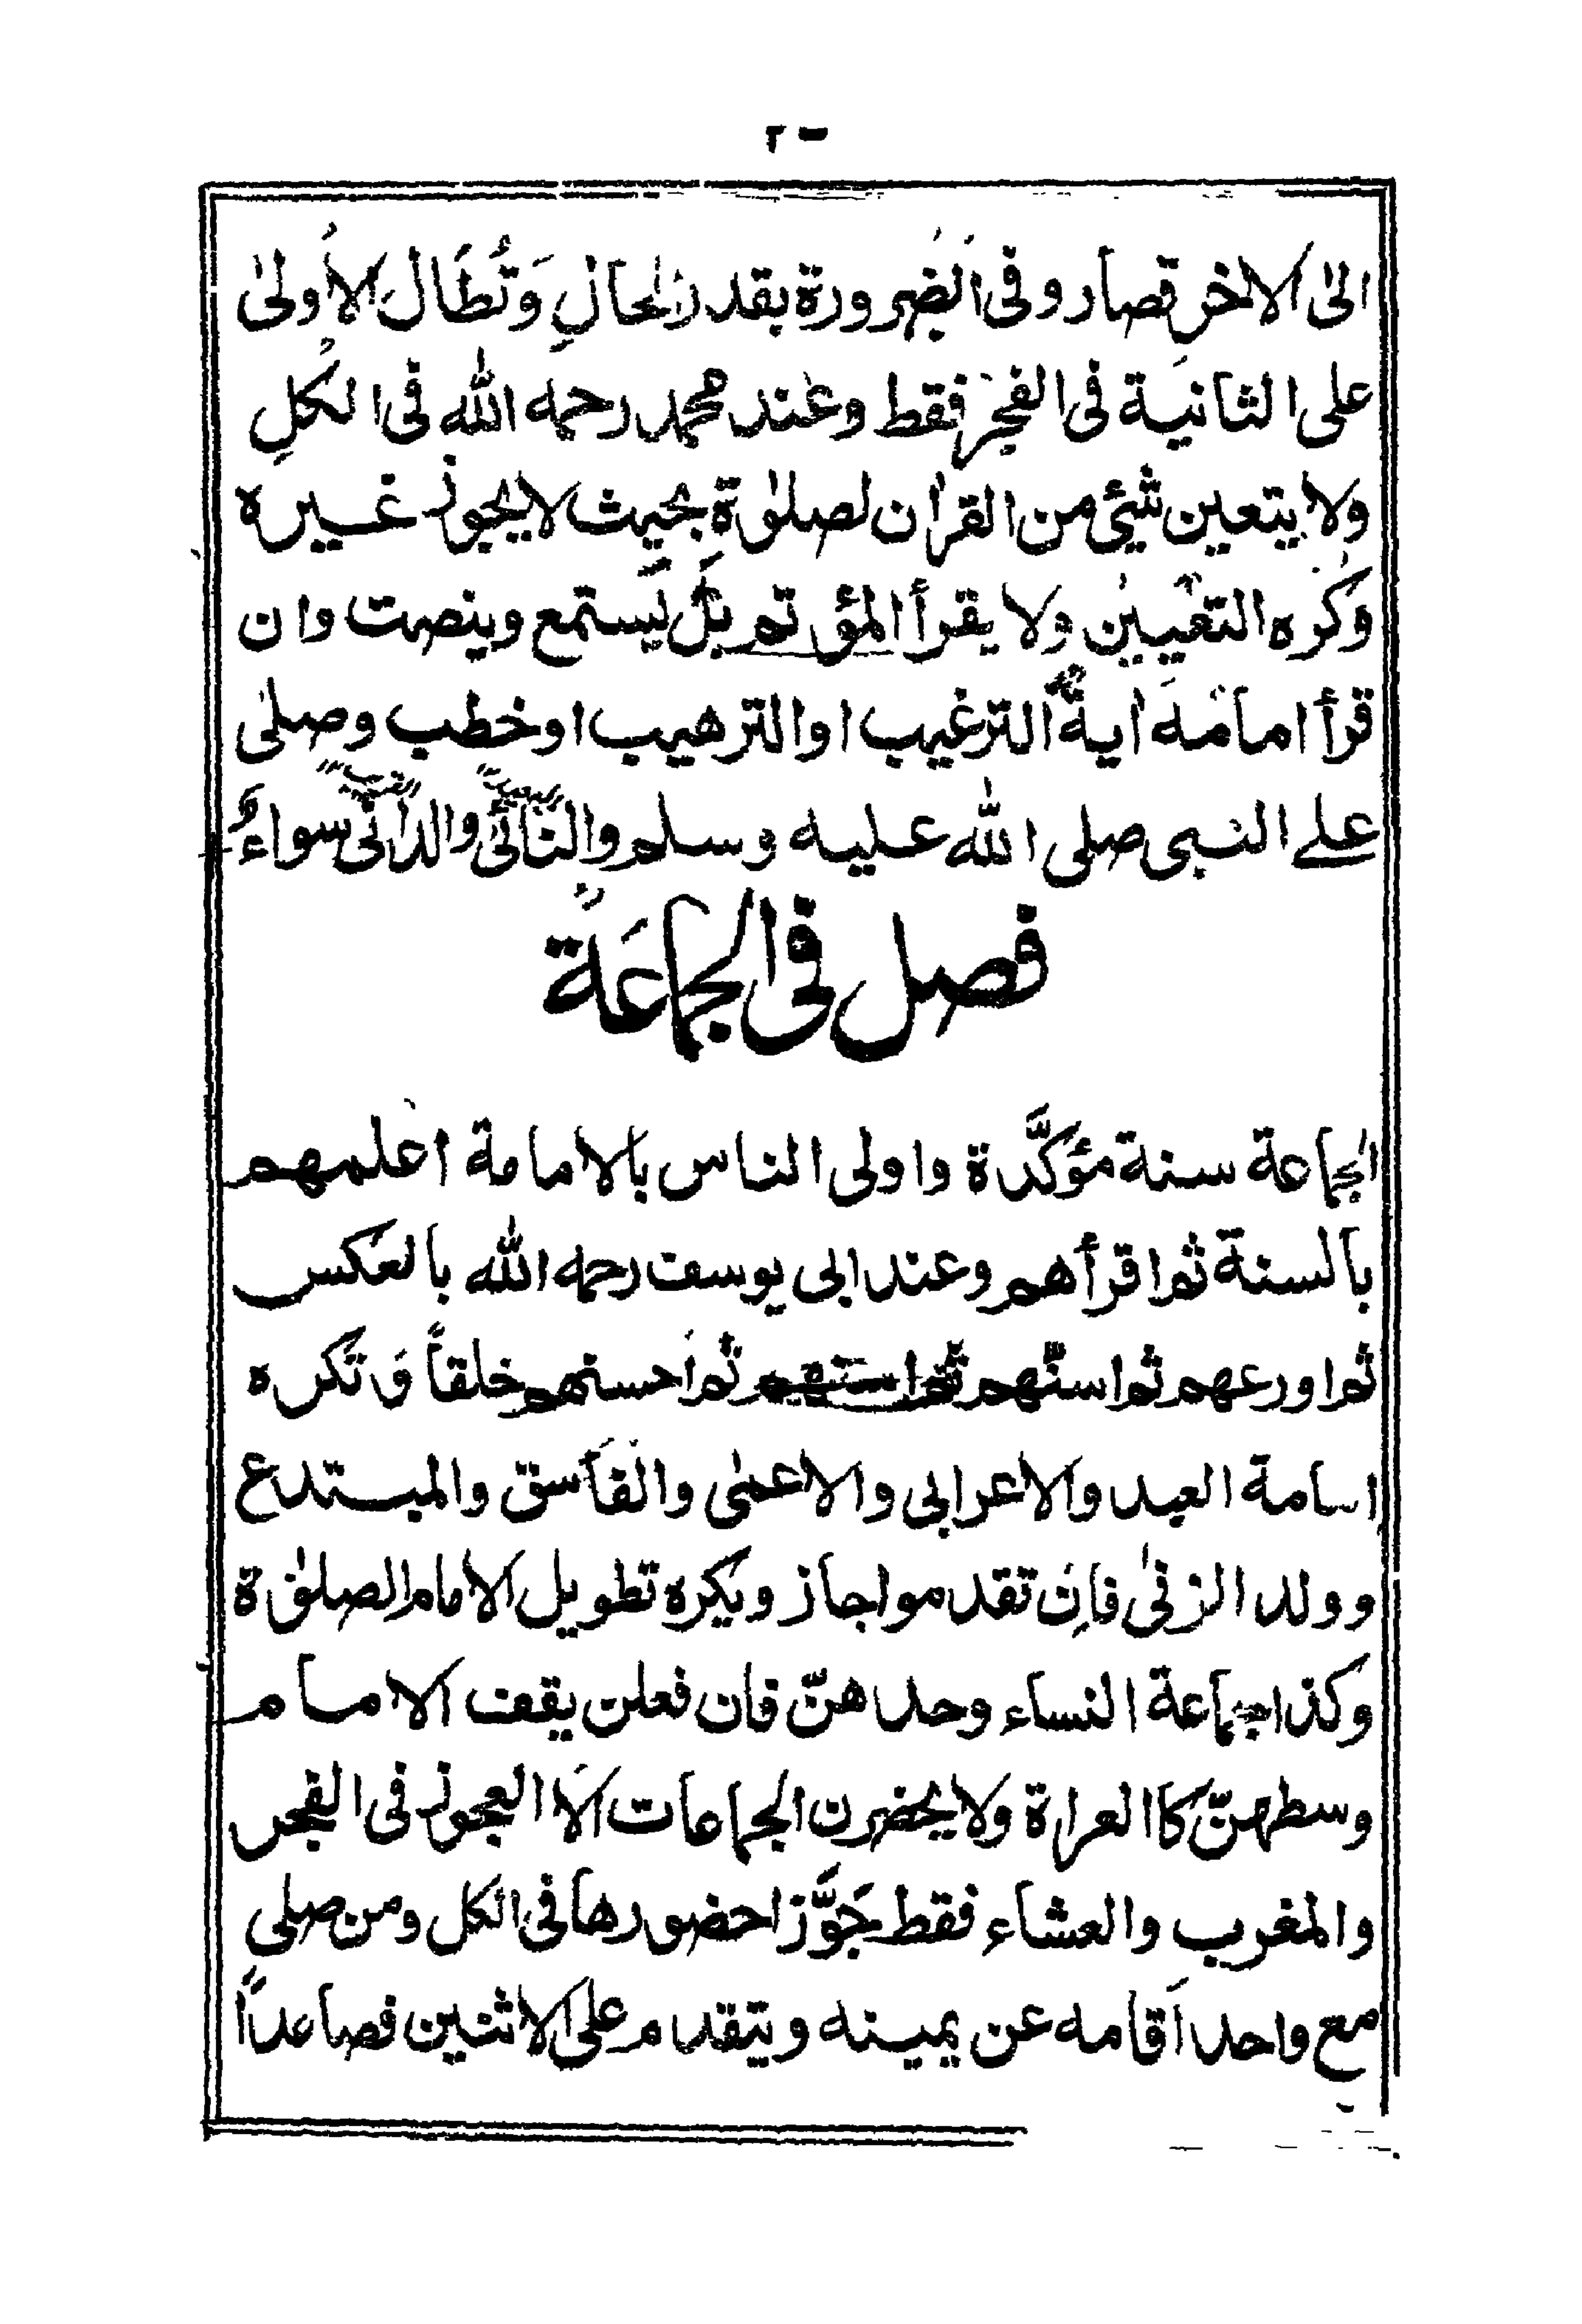 الىٰ الاٰخر قصار وفى الضرورة بقدر الحالِ وَتُطَال الأولىٰ
على الثانية فى الفجر فقط وعند محمد رحمه الله فى الكلِ
ولا يتعين شئ من القراٰن لصلوٰة بحيث لا يجوز غيره
وكره التعيين ولا يقرأ المؤتم بل يستمع وينصت وان
قرأ امامه اٰية الترغيب او الترهيب او خطب وصلىٰ
على النبى صلى الله عليه وسلم والنائى والدانى سواءٌ
فصل فى الجماعة
الجماعة سنة مؤكَّدة واولى الناس بالامامة اعلمهم
بالسنة ثم اقرأهم وعند ابى يوسف رحمه الله بالعكس
ثم اورعهم ثم اسنّهم ثم احسنهم خلقاً وتكره
اسامة العبد والاعرابى والاعمىٰ والفاسق والمبتدع
وولد الزنىٰ فاِن تقدموا جاز ويكره تطويل الامام الصلوٰة
وكذا جماعة النساء وحدهنّ فان فعلن يقف الامام
وسطهنّ كالعراة ولا يحضرن الجماعات الا العجوز فى الفجر
والمغرب والعشاء فقط جَوَّزا حضورها فى الكل ومن صلى
مع واحد اقامه عن يمينه ويتقدم على الاثنين فصاعداً